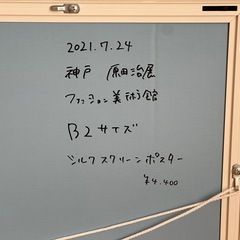 2021.7.24
神戸 原田治展
ファッション美術館
B2サイズ
シルクスクリーンポスター
¥4,400